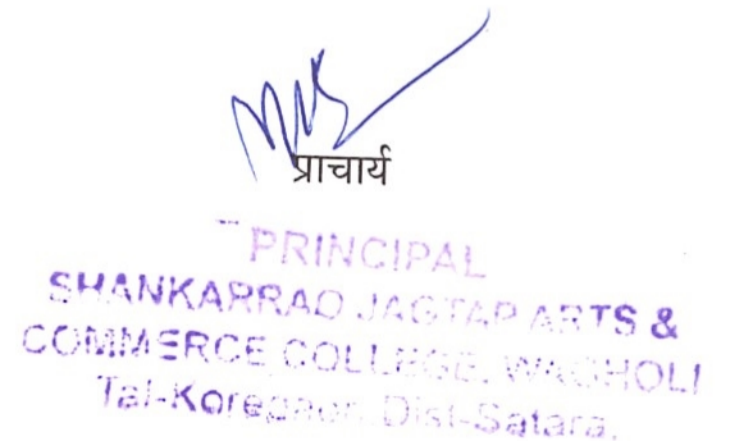 प्राचार्य
PRINCIPAL
SHANKARRAO JAGTAP ARTS &
COMMERCE COLLEGE, WAGHOLI
Tal-Koregaon Dist-Satara.